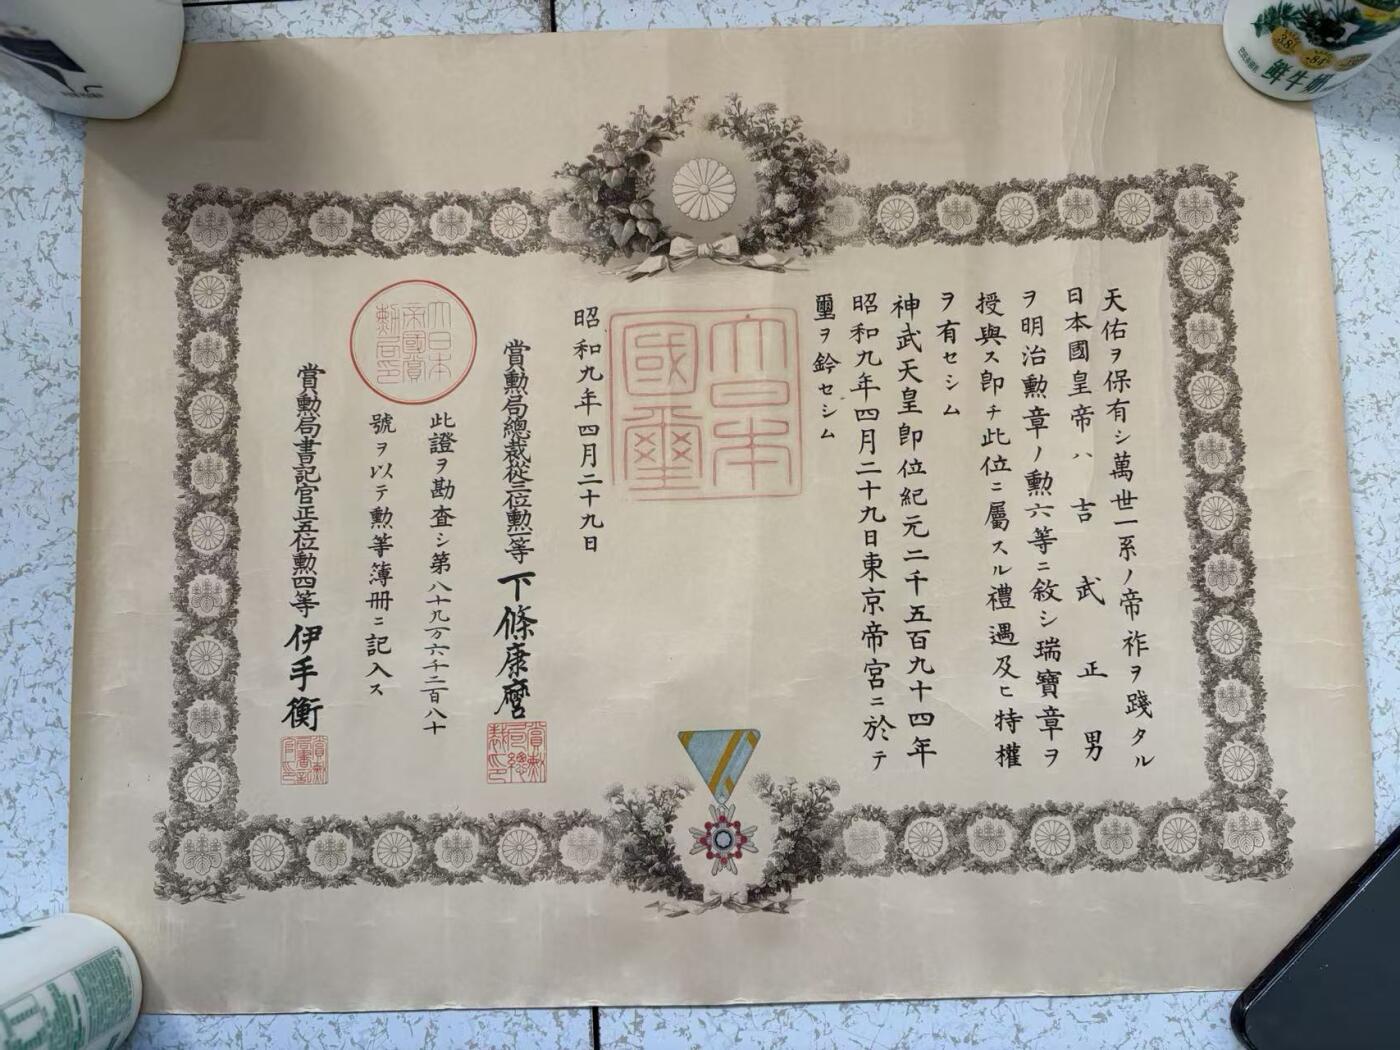 天佑ヲ保有シ萬世一系ノ帝祚ヲ踐タル
日本國皇帝ハ吉武正男
ヲ明治勲章ノ勲六等ニ敘シ瑞寶章ヲ
授與ス即チ此位ニ屬スル禮遇及ヒ特權
ヲ有セシム
神武天皇即位紀元二千五百九十四年
昭和九年四月二十九日東京帝宮ニ於テ
璽ヲ鈐セシム
大日本
國璽
昭和九年四月二十九日
賞勲局總裁從三位勲一等下條康麿
賞勲局總裁印
此證ヲ勘査シ第八十九万六千二百八十
號ヲ以テ勲等簿冊ニ記入ス
大日本
帝國賞
勲局印
賞勲局書記官正五位勲四等伊手衡
鮮牛奶
3.8